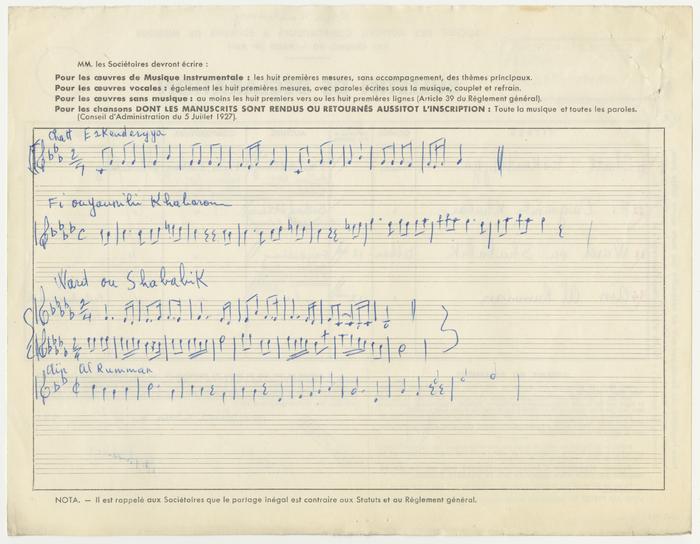 MM. les Sociétoires devront écrire :
Pour les œuvres de Musique instrumentale : les huit premières mesures, sans accompagnement, des thèmes principaux.
Pour les œuvres vocales : également les huit premières mesures, avec paroles écrites sous la musique, couplet et refrain.
Pour les œuvres sans musique : au moins les huit premiers vers ou les huit premières lignes (Article 39 du Règlement général).
Pour les chansons DONT LES MANUSCRITS SONT RENDUS OU RETOURNÉS AUSSITOT L'INSCRIPTION : Toute la musique et toutes les paroles.
(Conseil d'Administration du 5 Juillet 1927).
Chatt Eskenderyya
Fi ouyounihi Khabaron
Ward ou Shababik
Al Rumman
NOTA. — Il est rappelé aux Sociétoires que le partage inégal est contraire aux Statuts et au Règlement général.